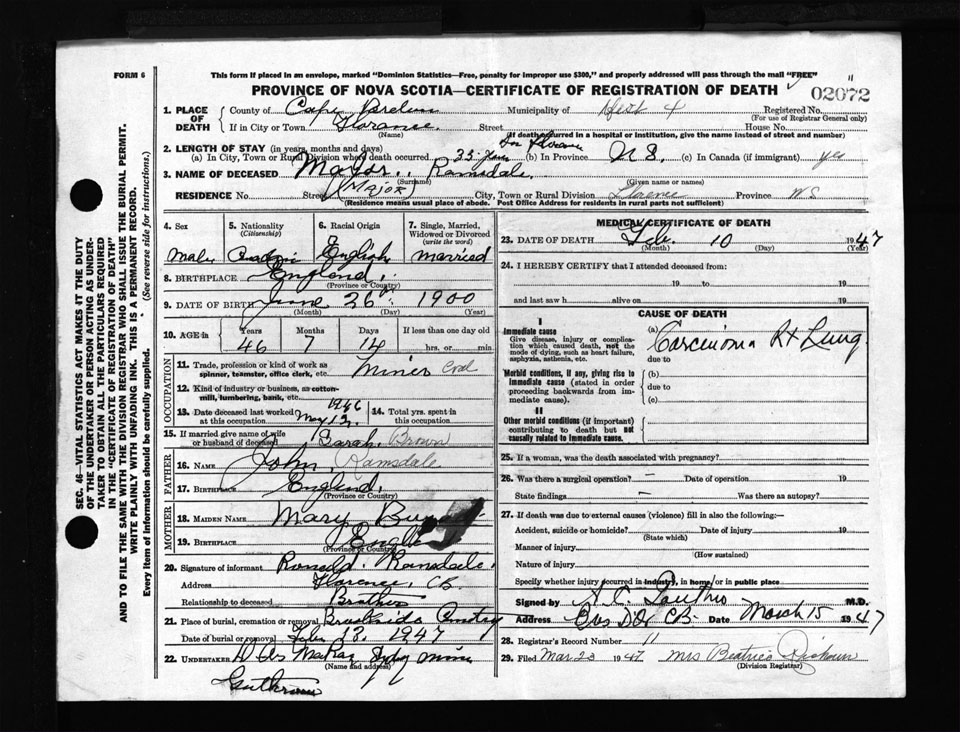 FORM 6
This form if placed in an envelope, marked "Dominion Statistics—Free, penalty for improper use $300," and properly addressed will pass through the mail "FREE"
PROVINCE OF NOVA SCOTIA—CERTIFICATE OF REGISTRATION OF DEATH
11
02072
1. PLACE OF DEATH
County of Cape Breton Municipality of Dist 4 Registered No.
(For use of Registrar General only)
If in City or Town Florence Street House No.
(Name) (If death occurred in a hospital or institution, give the name instead of street and number)
2. LENGTH OF STAY (in years, months and days)
(a) In City, Town or Rural Division where death occurred 35 years (b) In Province N S. (c) In Canada (if immigrant) yes
3. NAME OF DECEASED Major. Ramsdale.
(Surname) (Given name or names)
RESIDENCE No. Street (Major) City, Town or Rural Division Florence Province N S
(Residence means usual place of abode. Post Office Address for residents in rural parts not sufficient)
4. Sex
Male
5. Nationality
(Citizenship)
6. Racial Origin
English
7. Single, Married, Widowed or Divorced
(write the word)
married
8. BIRTHPLACE England.
(Province or Country)
9. DATE OF BIRTH June 26 1900
(Month) (Day) (Year)
10. AGE in
Years Months Days If less than one day old
46 7 14 hrs. or min
OCCUPATION
11. Trade, profession or kind of work as spinner, teamster, office clerk, etc. Miner Coal
12. Kind of industry or business, as cotton-mill, lumbering, bank, etc.
13. Date deceased last worked at this occupation May 13, 1946
14. Total yrs. spent in this occupation
15. If married give name of wife or husband of deceased Sarah Brown
FATHER
16. NAME John. Ramsdale
17. BIRTHPLACE England.
(Province or Country)
MOTHER
18. MAIDEN NAME Mary
19. BIRTHPLACE
(Province or Country)
20. Signature of informant Ronald. Ramsdale.
Address Florence, CB
Relationship to deceased Brother
21. Place of burial, cremation or removal Brookside Cemetery
Date of burial or removal Feb 13. 1947
22. UNDERTAKER
(Name and address)
MEDICAL CERTIFICATE OF DEATH
23. DATE OF DEATH Feb. 10 1947
(Month) (Day) (Year)
24. I HEREBY CERTIFY that I attended deceased from:
19 to 19
and last saw h alive on 19
CAUSE OF DEATH
I
Immediate cause
Give disease, injury or complication which caused death, not the mode of dying, such as heart failure, asphyxia, asthenia, etc.
(a) Carcinoma Rt Lung
due to
Morbid conditions, if any, giving rise to immediate cause (stated in order proceeding backwards from immediate cause).
(b)
due to
(c)
II
Other morbid conditions (if important) contributing to death but not causally related to immediate cause.
25. If a woman, was the death associated with pregnancy?
26. Was there a surgical operation? — Date of operation 19
State findings — Was there an autopsy?
27. If death was due to external causes (violence) fill in also the following:—
Accident, suicide or homicide? Date of injury 19
(State which)
Manner of injury
(How sustained)
Nature of injury
Specify whether injury occurred in industry, in home, or in public place
Signed by M.D.
Address Date March 15 1947
28. Registrar's Record Number 11
29. Filed Mar 23 1947 Mrs Beatrice
(Division Registrar)
SEC. 46—VITAL STATISTICS ACT MAKES IT THE DUTY
OF THE UNDERTAKER OR PERSON ACTING AS UNDER-
TAKER TO OBTAIN ALL THE PARTICULARS REQUIRED
IN THE "CERTIFICATE OF REGISTRATION OF DEATH"
AND TO FILE THE SAME WITH THE DIVISION REGISTRAR WHO SHALL ISSUE THE BURIAL PERMIT.
WRITE PLAINLY WITH UNFADING INK. THIS IS A PERMANENT RECORD.
Every item of information should be carefully supplied. (See reverse side for instructions.)